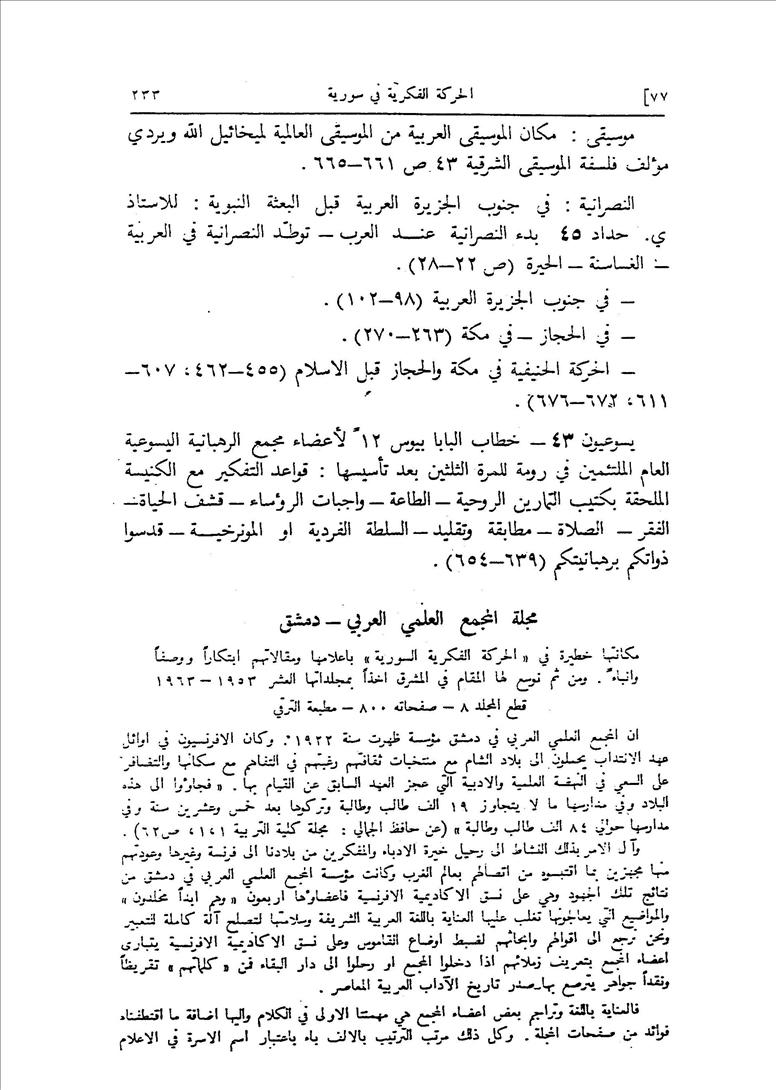 [٧٧ الحركة الفكرية في سورية ٢٣٣
موسيقى : مكان الموسيقى العربية من الموسيقى العالمية لميخائيل الله ويردي
مؤلف فلسفة الموسيقى الشرقية ٤٣ ص ٦٦١–٦٦٥ .
النصرانية : في جنوب الجزيرة العربية قبل البعثة النبوية : للاستاذ
ي. حداد ٤٥ بدء النصرانية عنـــد العرب – توطّد النصرانية في العربية
– الغساسنة – الحيرة (ص ٢٢–٢٨) .
– في جنوب الجزيرة العربية (٩٨–١٠٢) .
– في الحجاز – في مكة (٢٦٣–٢٧٠) .
– الحركة الحنيفية في مكة والحجاز قبل الاسلام (٤٥٥–٤٦٢، ٦٠٧–
٦١١، ٦٧٢–٦٧٦) .
يسوعيون ٤٣ – خطاب البابا بيوس ١٢ً لأعضاء مجمع الرهبانية اليسوعية
العام الملتئمين في رومة للمرة الثلثين بعد تأسيسها : قواعد التفكير مع الكنيسة
الملحقة بكتيب التمارين الروحية – الطاعة – واجبات الرؤساء – قشف الحياة –
الفقر – الصلاة – مطابقة وتقليد – السلطة الفردية او المونرخيـــة – قدسوا
ذواتكم برهبانيتكم (٦٣٩–٦٥٤) .
مجلة المجمع العلمي العربي – دمشق
مكانتها خطيرة في « الحركة الفكرية السورية » باعلامها ومقالاتهم ابتكاراً ووصفاً
وانباءً . ومن ثم نوسع لها المقام في المشرق اخذاً بمجلداتها العشر ١٩٥٣ – ١٩٦٣
قطع المجلد ٨ – صفحاته ٨٠٠ – مطبعة الترقي
ان المجمع العلمي العربي في دمشق مؤسسة ظهرت سنة ١٩٢٢ . وكان الافرنسيون في اوائل
عهد الانتداب يحملون الى بلاد الشام مع منتخبات ثقافتهم رغبتهم في التفاهم مع سكانها والتضافر
على السعي في النهضة العلمية والادبية التي عجز العهد السابق عن القيام بها . « فجاؤوا الى هذه
البلاد وفي مدارسها ما لا يتجاوز ١٩ الف طالب وطالبة وتركوها بعد خمس وعشرين سنة وفي
مدارسها حوالي ٨٤ الف طالب وطالبة » (عن حافظ الجمالي : مجلة كلية التربية ١،١، ص ٦٢) .
وآل الامر بذلك النشاط الى رحيل خيرة الادباء والمفكرين من بلادنا الى فرنسة وغيرها وعودتهم
منها مجهزين بما اقتبسوه من اتصالهم بعالم الغرب وكانت مؤسسة المجمع العلمي العربي في دمشق من
نتائج تلك الجهود وهي على نسق الاكاديمية الافرنسية فاعضاؤها اربعون « وهم ابداً مخلدون »
والمواضيع التي يعالجونها تغلب عليها العناية باللغة العربية الشريفة وسلامتها لتصلح آلة كاملة للتعبير
ونحن نرجع الى اقوالهم وابحاثهم لضبط اوضاع القاموس وعلى نسق الاكاديمية الافرنسية يتبارى
اعضاء المجمع بتعريف زملائهم اذا دخلوا المجمع او رحلوا الى دار البقاء فمن « كلماتهم » تقريظاً
ونقداً جواهر يترصع بها صدر تاريخ الآداب العربية المعاصر .
فالعناية باللغة وتراجم بعض اعضاء المجمع هي مهمتنا الاولى في الكلام واليها اضافة ما اقتطفناه
فوائد من صفحات المجلة . وكل ذلك مرتب الترتيب بالالف باء باعتبار اسم الاسرة في الاعلام